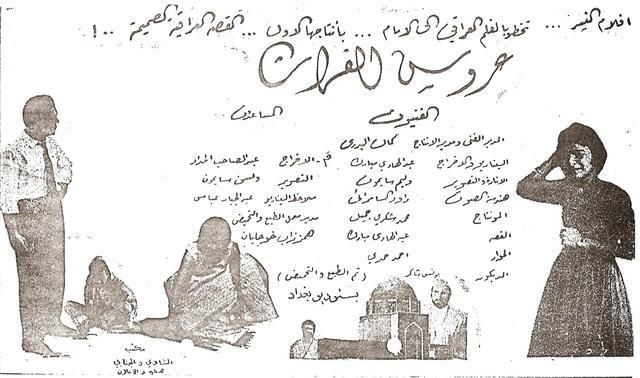 افلام النسر ... تخطو بالفلم العراقي الى الامام ... بأنتاجها الاول ... القصة العراقية الصميمة .. !
عروس الفرات
الفنيون
المساعدون
المدير الفني ومدير الانتاج كمال البدري
السيناريو والاخراج عبد الهادي مبارك
الانارة والتصوير وليم سايمون
هندسة الصوت داود السامرائي
المونتاج محمد شكري جميل
القصه عبد الهادي مبارك
الحوار احمد حمدي
الديكور يونس شاكر
فم . الاخراج عبد الصاحب الحداد
التصوير ولسن سايمون
ملاحظ السناريو عبد الجبار عباس
مدير معمل الطبع والتحميض
همرزاب خوجابيان
( تم الطبع والتحميض )
بستوديو بغداد
مكتب